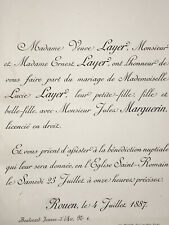 Madame Veuve Layer, Monsieur
et Madame Ernest Layer, ont l'honneur de
vous faire part du mariage de Mademoiselle
Lucie Layer, leur petite-fille, fille et
belle-fille, avec Monsieur Jules Marguerin,
licencié en droit.
Et vous prient d'assister à la bénédiction nuptiale
qui leur sera donnée, en l'Église Saint-Romain
le Samedi 23 Juillet à onze heures précises.
Rouen, le 4 Juillet 1887.
Boulevard Jeanne-d'Arc, N°